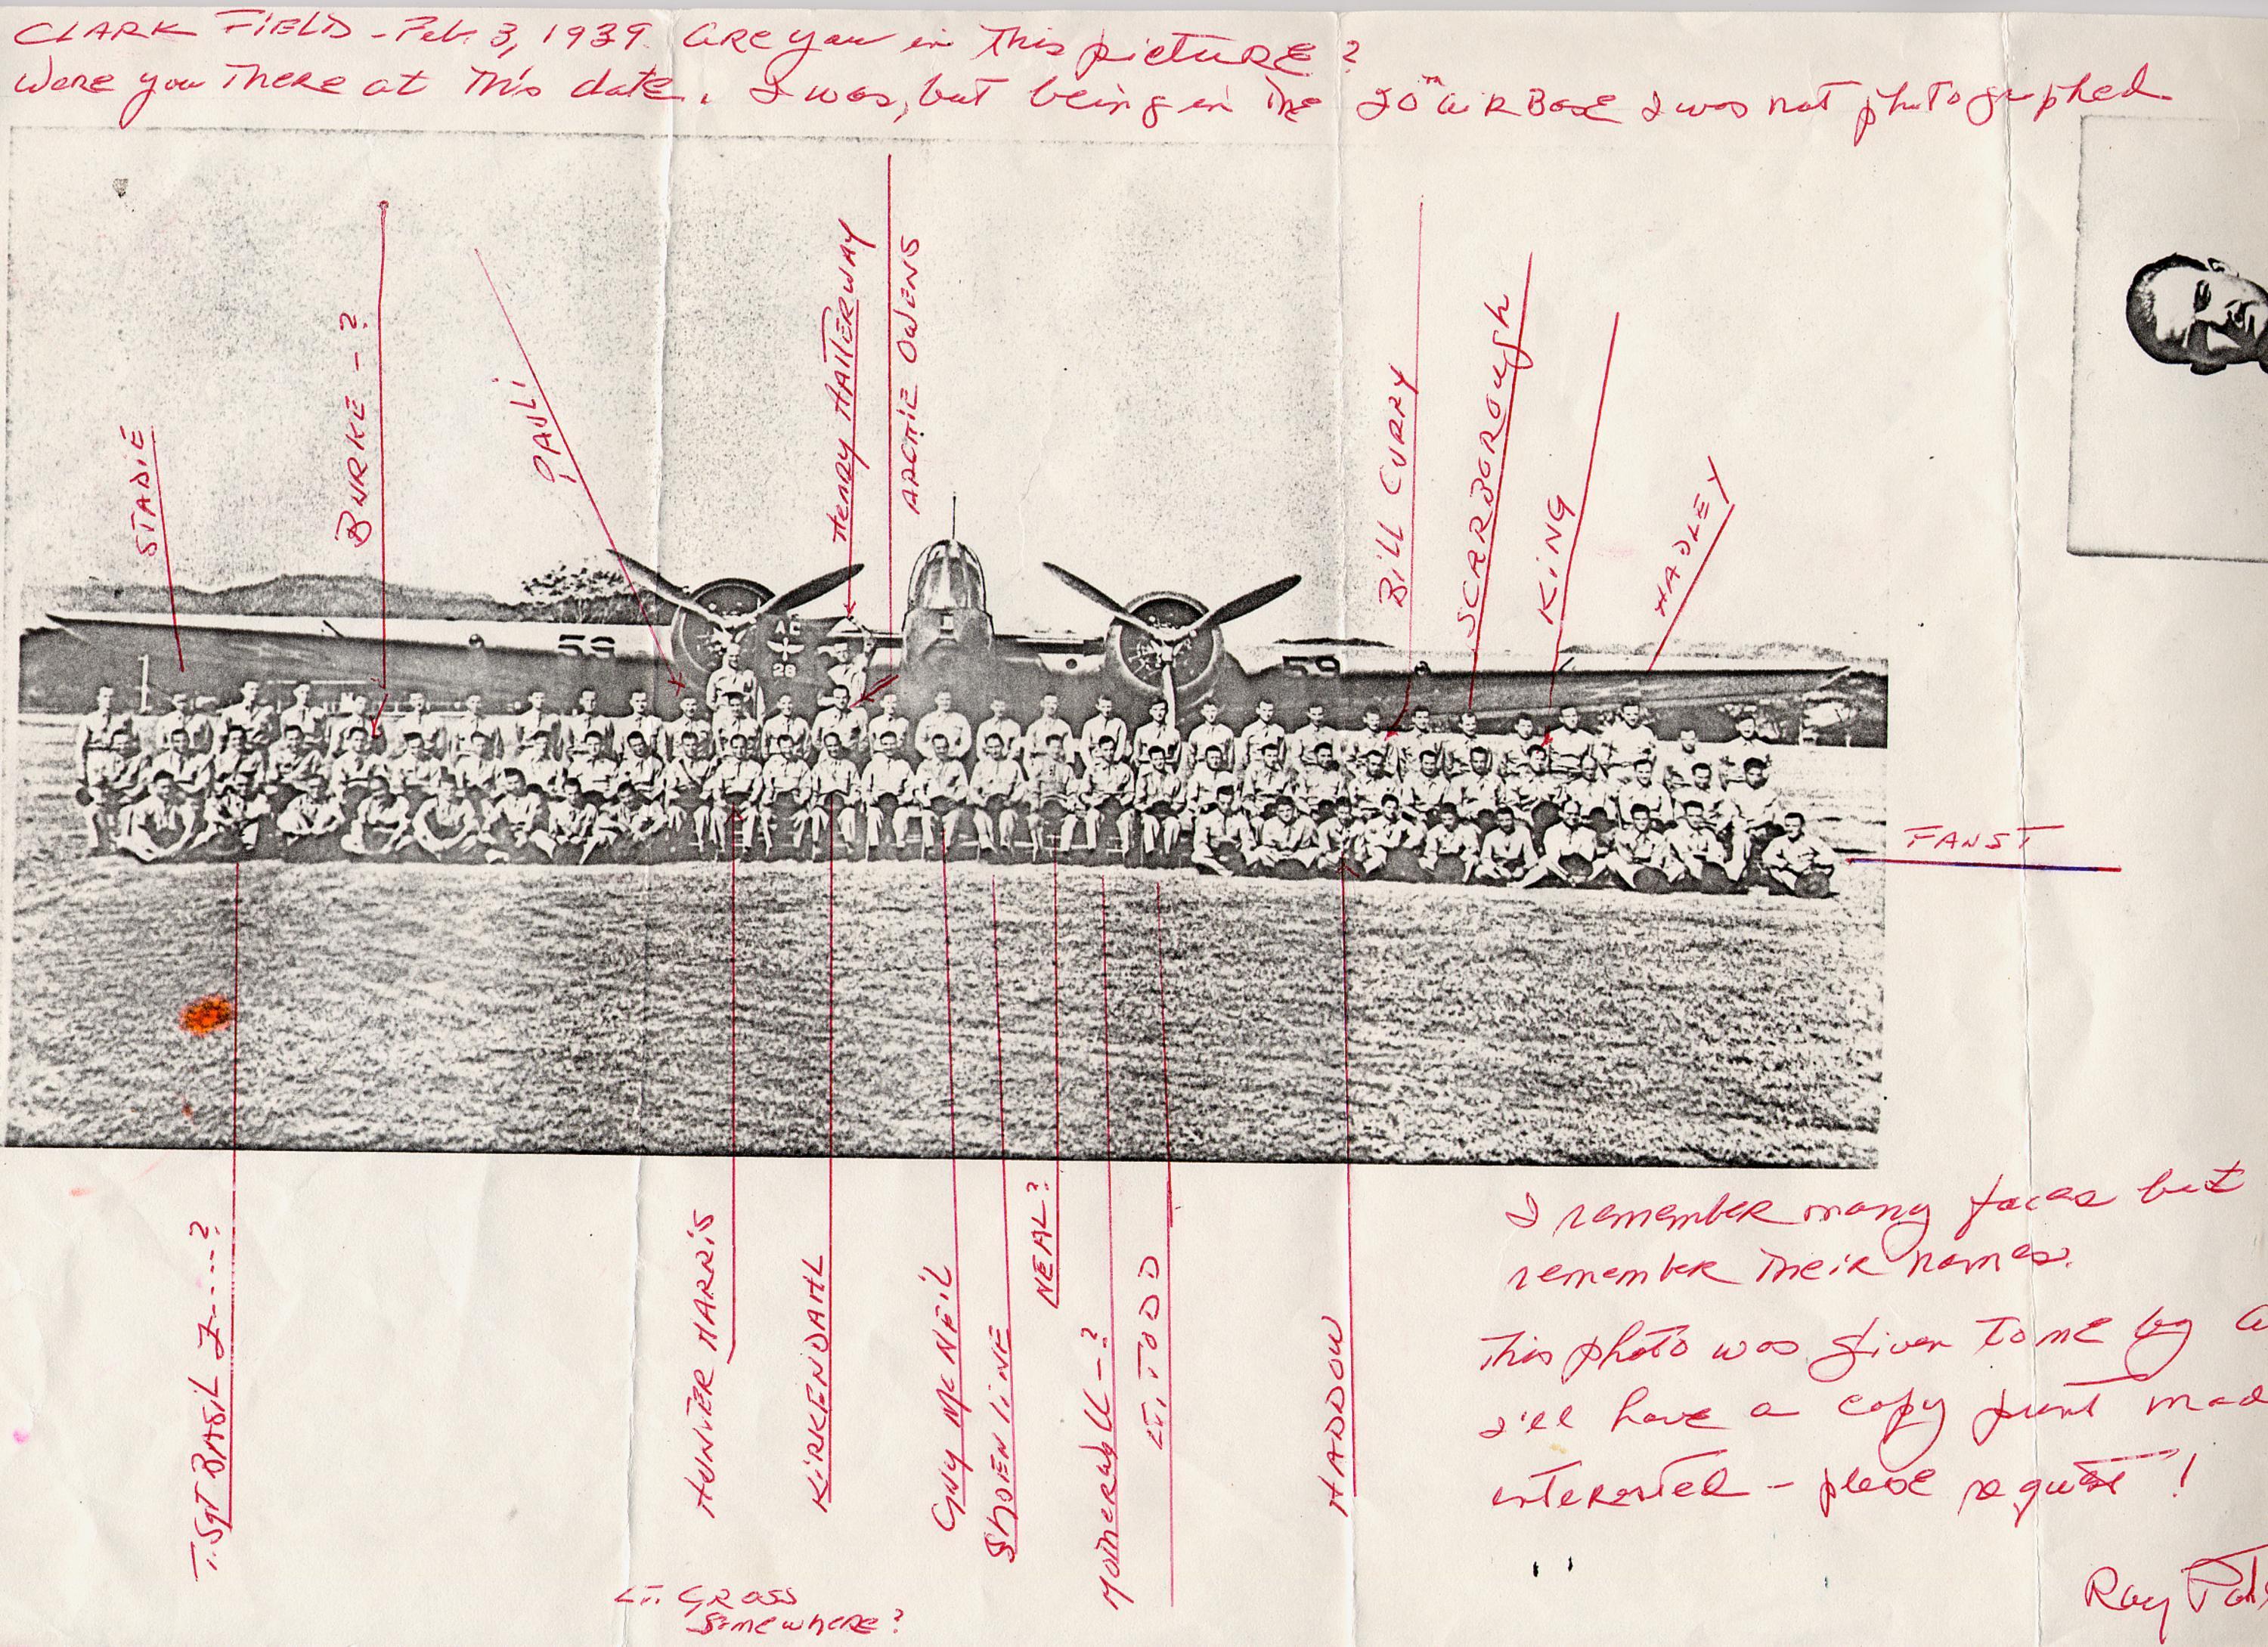 CLARK FIELD - Feb 3, 1939. Are you in this picture?
Were you there at this date. I was, but being in the 20th AIR Base I was not photographed
STADIE
BURKE - ?
PAULI
HENRY HATTERWAY
ARCHIE OWENS
BILL CURRY
SCARBOROUGH
KING
HADLEY
59
AC
28
59
FAUST
T. Sgt BASIL Z----?
HUNTER HARRIS
KIRKENDAHL
GUY McNEIL
SHOENLINE
NEAL?
LT. TODD
HADDOW
LT. GROSS
Somewhere?
I remember many faces but
remember their names.
This photo was given to me by a
I'll have a copy print mad
interested - please request!
Ray